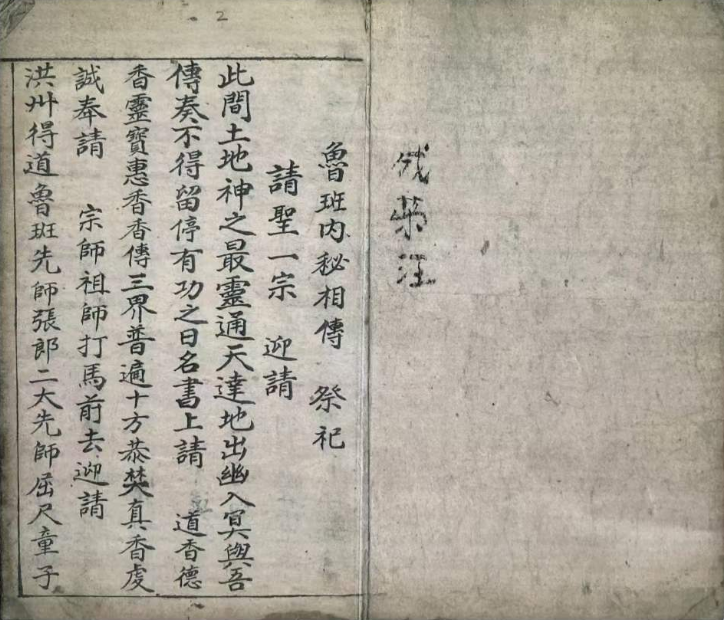 魯班内秘相傳　祭祀
請聖一宗　迎請
此間土地神之最靈通天達地出幽入冥與吾
傳奏不得留停有功之日名書上請　道香德
香靈寶惠香香傳三界普遍十方恭焚真香虔
誠奉請　宗師祖師打馬前去迎請
洪州得道魯班先師張郎二大先師屈尺童子